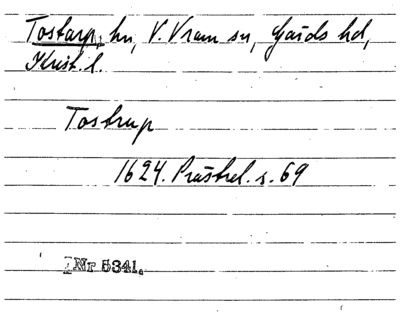 Tostarp, hn, V. Vram sn, Gärds hd,
Krist. l.
Tostrup
1624. Prästrel. s. 69
Nr 5341.